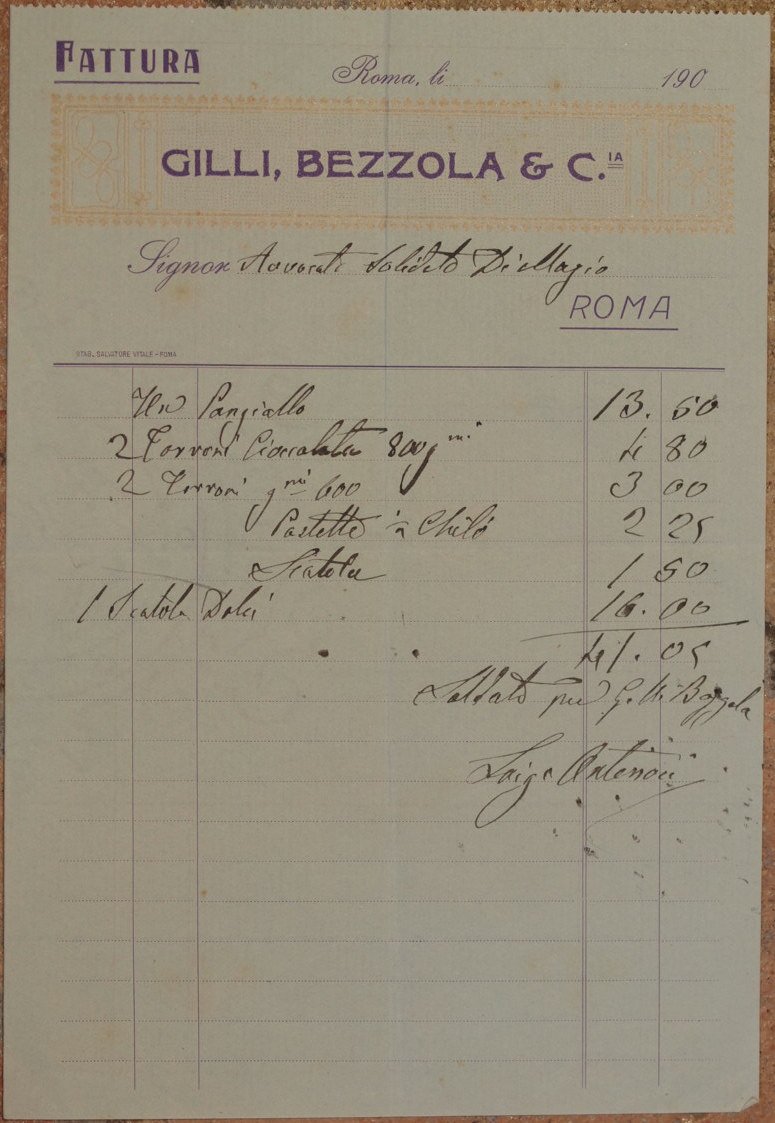 FATTURA
Roma, li 190
GILLI, BEZZOLA & C.IA
Signor Avvocato Di Magio
ROMA
STAB. SALVATORE VITALE - ROMA
Un Pangiallo 13.50
2 Torroni Cioccolata 800 gmi 4 80
2 Torroni gmi 600 3 00
Pastette Chilo 2 25
Scatola 1 50
1 Scatola Dolci 16.00
41.05
Saldato per Gilli Bezzola
Luigi Antenori